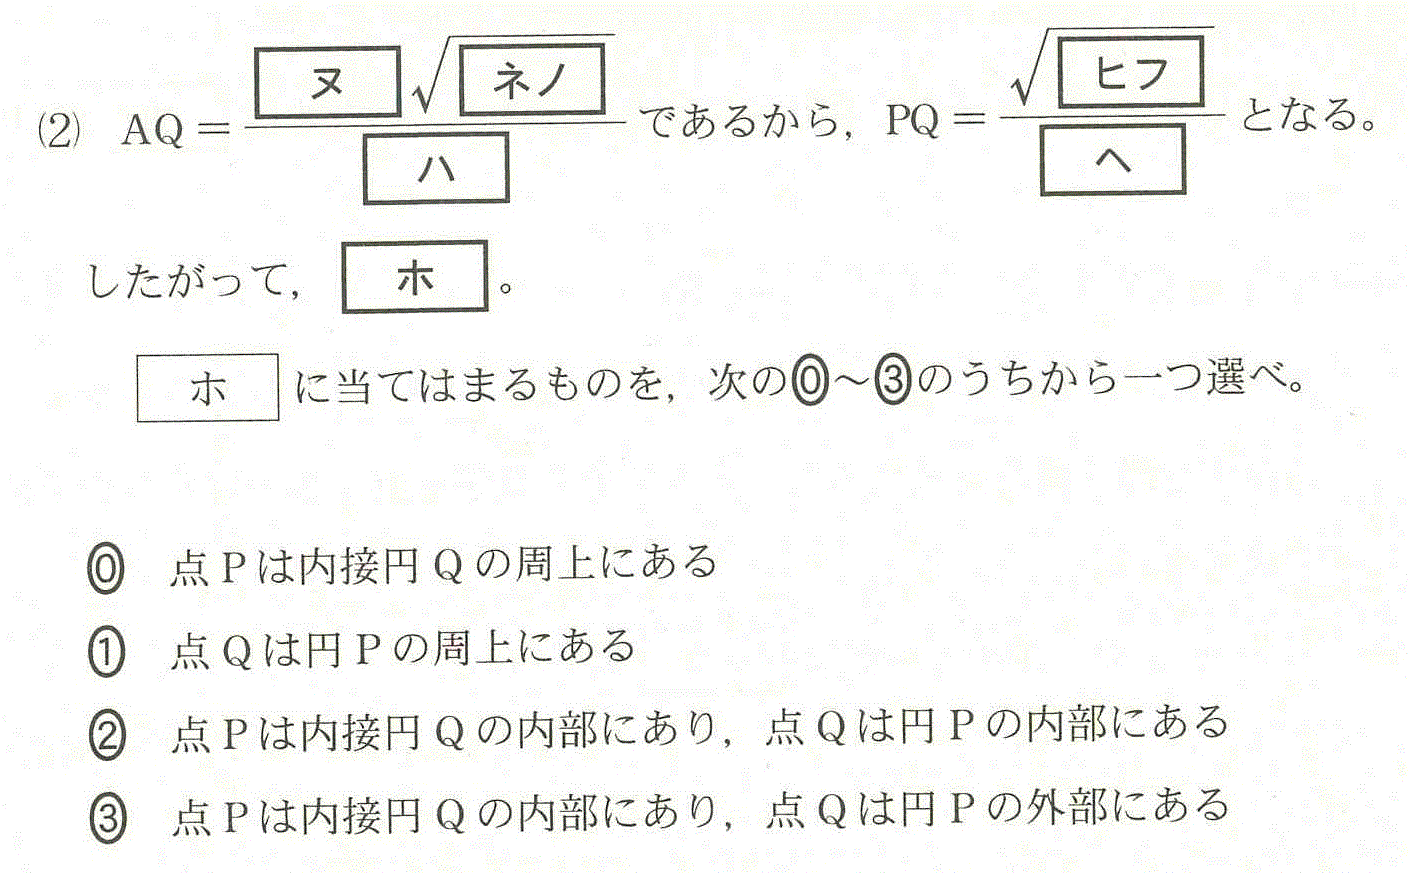 (2) AQ = ヌ √ネノ / ハ であるから, PQ = √ヒフ / ヘ となる。
したがって, ホ 。
ホ に当てはまるものを, 次の⓪~③のうちから一つ選べ。
⓪ 点Pは内接円Qの周上にある
① 点Qは円Pの周上にある
② 点Pは内接円Qの内部にあり, 点Qは円Pの内部にある
③ 点Pは内接円Qの内部にあり, 点Qは円Pの外部にある